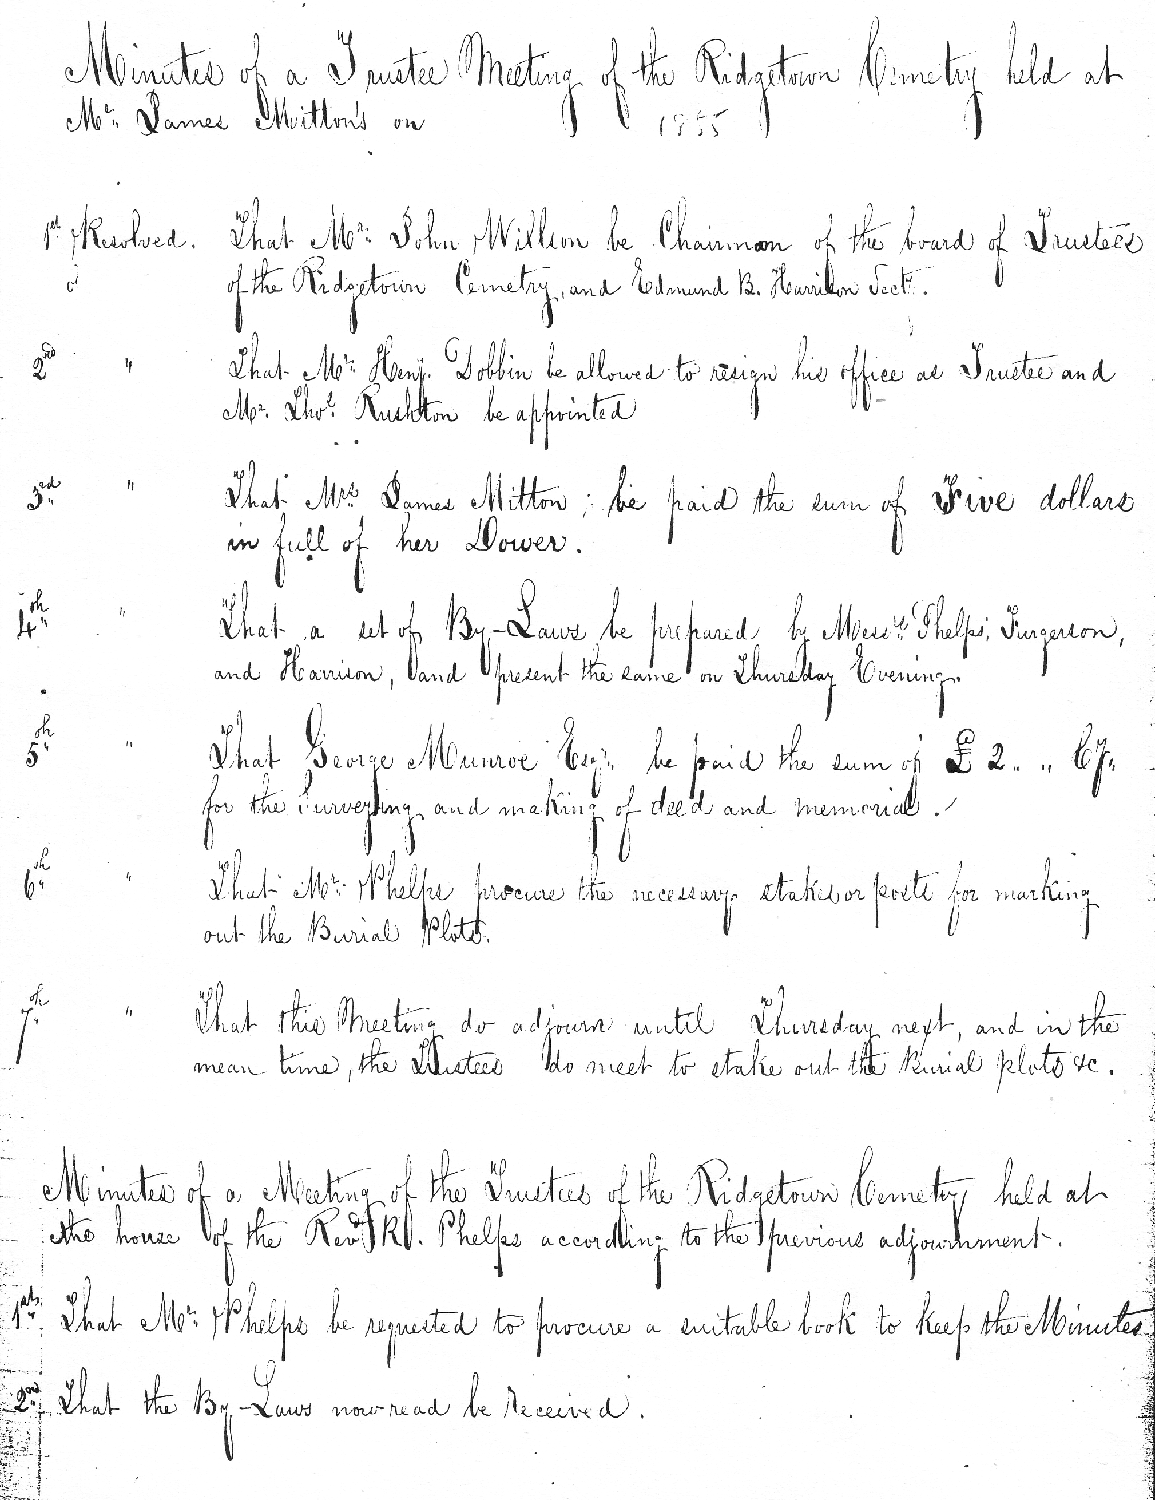 Minutes of a Trustee Meeting of the Ridgetown Cemetry held at
Mr. James Mitton's on 1855
1st Resolved. That Mr. John Willson be Chairman of the board of Trustees
of the Ridgetown Cemetry, and Edmund B. Harrison Secty.
2nd " That Mr. Heny. Dobbin be allowed to resign his office as Trustee and
Mr. Thos. Rushton be appointed
3rd " That Mrs James Mitton; be paid the sum of Five dollars
in full of her Dower.
4th " That a set of By-Laws be prepared by Messrs. Phelps, Furgerson,
and Harrison, and present the same on Thursday Evening.
5th " That George Munroe Esqr. be paid the sum of £ 2 " "
for the Surveying and making of deed and memorial.
6th " That Mr. Phelps procure the necessary stakes or posts for marking
out the Burial Plots.
7th " That this Meeting do adjourn until Thursday next, and in the
mean time, the Trustees do meet to stake out the Burial plots &c.
Minutes of a Meeting of the Trustees of the Ridgetown Cemetry held at
the house of the Revd. R. Phelps according to the previous adjournment.
1st. That Mr. Phelps be requested to procure a suitable book to keep the Minutes
2nd. That the By-Laws now read be received.